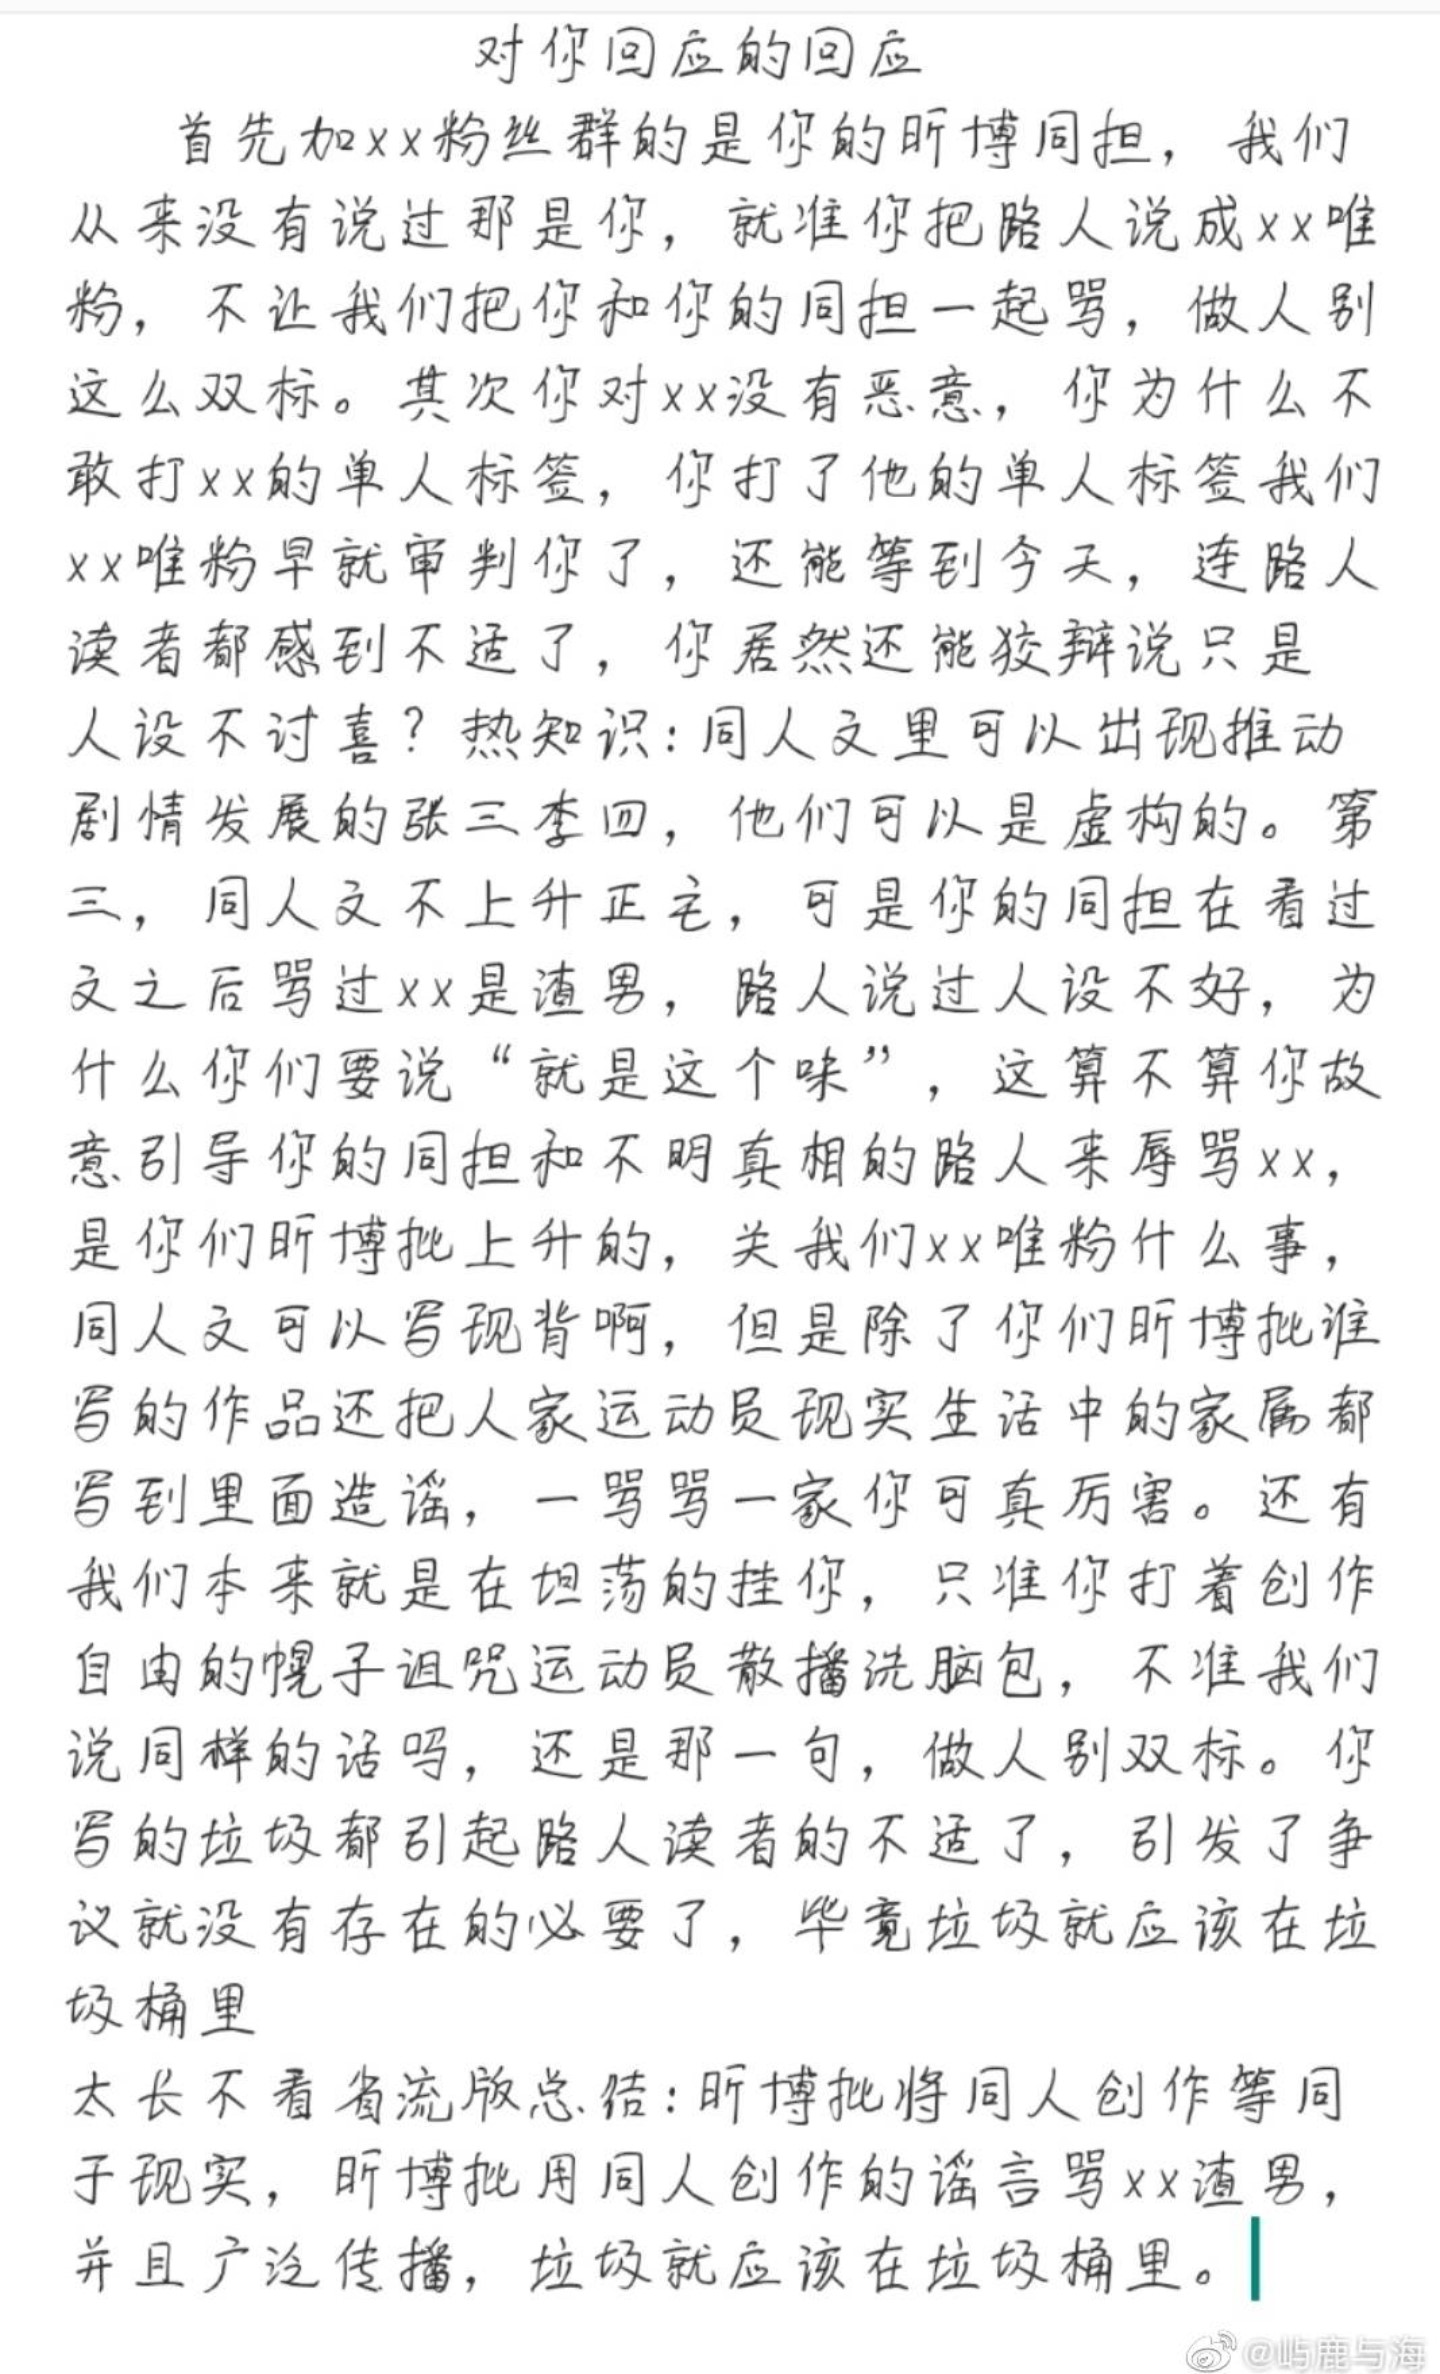 对你回应的回应
首先加xx粉丝群的是你的昕博同担，我们
从来没有说过那是你，就准你把路人说成xx唯
粉，不让我们把你和你的同担一起骂，做人别
这么双标。其次你对xx没有恶意，你为什么不
敢打xx的单人标签，你打了他的单人标签我们
xx唯粉早就审判你了，还能等到今天，连路人
读者都感到不适了，你居然还能狡辩说只是
人设不讨喜？热知识：同人文里可以出现推动
剧情发展的张三李四，他们可以是虚构的。第
三，同人文不上升正主，可是你的同担在看过
文之后骂过xx是渣男，路人说过人设不好，为
什么你们要说“就是这个味”，这算不算你故
意引导你的同担和不明真相的路人来辱骂xx，
是你们昕博批上升的，关我们xx唯粉什么事，
同人文可以写现背啊，但是除了你们昕博批谁
写的作品还把人家运动员现实生活中的家属都
写到里面造谣，一骂骂一家你可真厉害。还有
我们本来就是在坦荡的挂你，只准你打着创作
自由的幌子诅咒运动员散播洗脑包，不准我们
说同样的话吗，还是那一句，做人别双标。你
写的垃圾都引起路人读者的不适了，引发了争
议就没有存在的必要了，毕竟垃圾就应该在垃
圾桶里
太长不看省流版总结：昕博批将同人创作等同
于现实，昕博批用同人创作的谣言骂xx渣男，
并且广泛传播，垃圾就应该在垃圾桶里。
@屿鹿与海